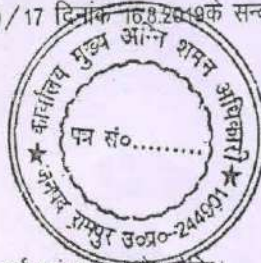 /17 दिनांक 16.8.2019के सन्द
कार्यालय मुख्य अग्नि शमन अधिकारी
पत्र सं०.........
★ जनपद रामपुर उ०प्र०-244901 ★